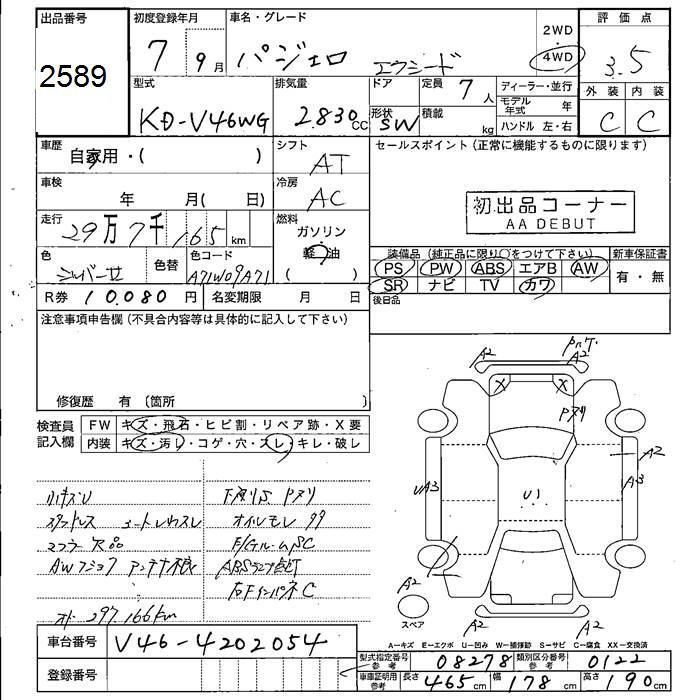 出品番号
2589
初度登録年月
7 9月
車名・グレード
パジェロ
エクシード
2WD
・
4WD
評価点
3.5
型式
KD-V46WG
排気量
2.830 CC
ドア
形状
SW
定員 7 人
積載 kg
ディーラー・並行
モデル年式 年
ハンドル 左・右
外装 内装
C C
車歴
自家用・( )
シフト
AT
セールスポイント(正常に機能するものに限ります)
車検
年 月( 日)
冷房
AC
初出品コーナー
AA DEBUT
走行
29万7千165 km
燃料
ガソリン
軽油
( )
色
シルバー
色替
色コード
A71W09A71
装備品(純正品に限り○をつけて下さい)
新車保証書
PS PW ABS エアB AW
有・無
SR ナビ TV カワ
R券 10,080 円
名変期限 月 日
後日品
注意事項申告欄(不具合内容等は具体的に記入して下さい)
修復歴 有(箇所 )
検査員
記入欄
FW キズ・飛石・ヒビ割・リペア跡・X要
内装 キズ・汚れ・コゲ・穴・スレ・キレ・破レ
小キズU
下廻りS Pヌリ
スタッドレス シートレカスレ
オイルモレ
マフラー欠品
AWフショク アンテナ不良
ABSランプ点灯
右Fインパネ C
オド 297,166km
A2
A2
X X
Pヌリ
A2
UA3
U1
A3
A2
スペア
A2
A2
A-キズ E-エクボ U-凹み W-補修跡 S-サビ C-腐食 XX-交換済
車台番号
V46-4202054
登録番号
型式指定番号参考
08278
類別区分番号参考
0122
車庫証明用参考
長さ 465cm
幅 178cm
高さ 190cm